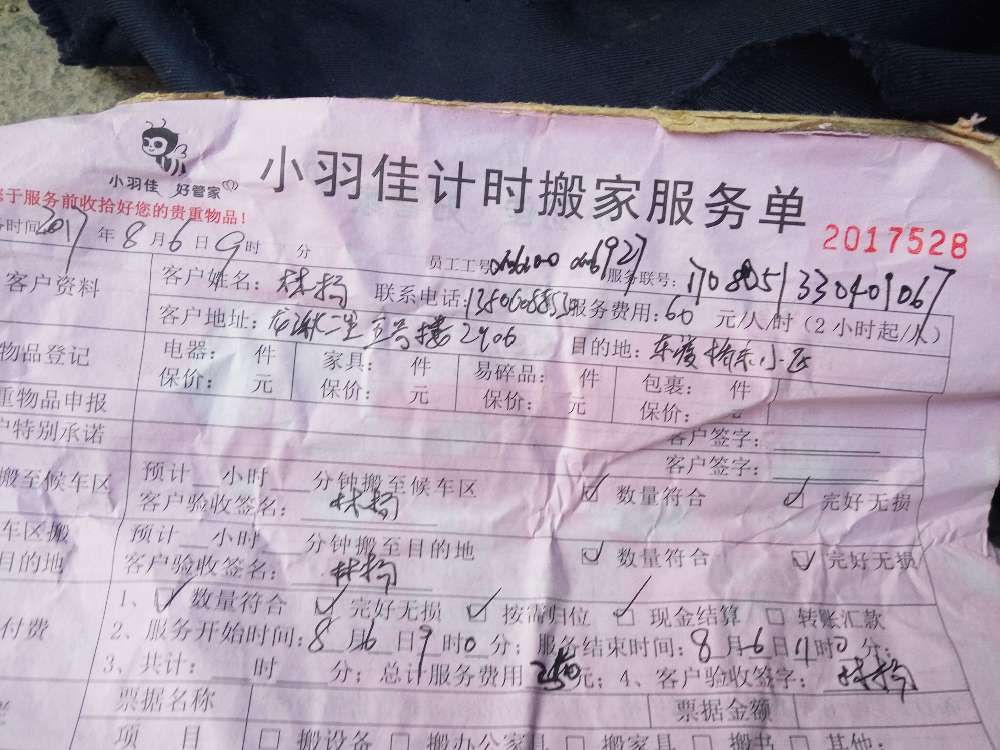 小羽佳 好管家
小羽佳计时搬家服务单
于服务前收拾好您的贵重物品！
2017528
时间2017年8月6日9时 分
员工工号 服务联号：
客户资料
客户姓名：林杨 联系电话： 服务费用：60元/人/时（2小时起/人）
客户地址： 2906 目的地： 小区
物品登记
电器： 件 家具： 件 易碎品： 件 包裹： 件
保价： 元 保价： 元 保价： 元 保价：
重物品申报
户特别承诺
客户签字：
客户签字：
搬至候车区
预计 小时 分钟搬至候车区
客户验收签名：林杨 数量符合 完好无损
车区搬
目的地
预计 小时 分钟搬至目的地
客户验收签名：林杨 数量符合 完好无损
付费
1、数量符合 完好无损 按需归位 现金结算 转账汇款
2、服务开始时间：8月6日9时0分；服务结束时间：8月6日11时0分；
3、共计： 时 分；总计服务费用 元；4、客户验收签字：林杨
票据名称 票据金额
项 目 搬设备 搬办公家具 搬家具 搬书 其他：